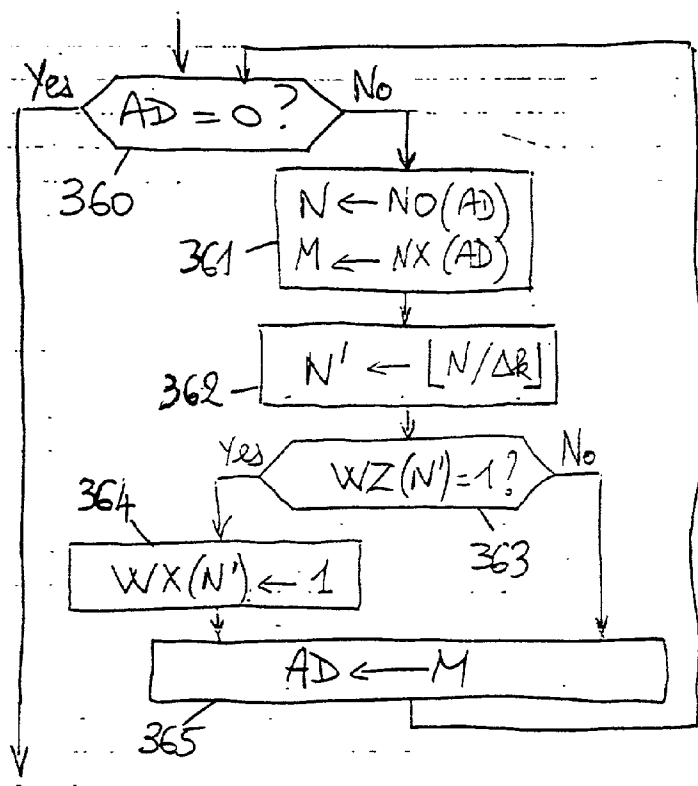 Yes
AD = 0?
No
360
N ← NO(AD)
M ← NX(AD)
361
N' ← ⌊N/Δk⌋
362
Yes
WZ(N')=1?
No
363
364
WX(N') ← 1
AD ← M
365